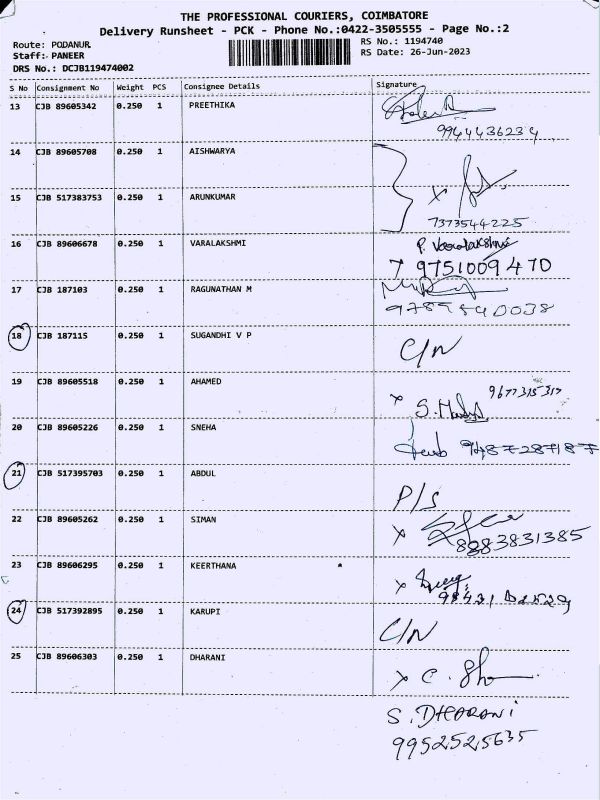 THE PROFESSIONAL COURIERS, COIMBATORE
Delivery Runsheet - PCK - Phone No.:0422-3505555 - Page No.:2
Route: PODANUR
RS No.: 1194740
Staff: PANEER
RS Date: 26-Jun-2023
DRS No.: DCJB119474002
S No Consignment No Weight PCS Consignee Details Signature
13 CJB 89605342 0.250 1 PREETHIKA
9944436234
14 CJB 89605708 0.250 1 AISHWARYA
15 CJB 517383753 0.250 1 ARUNKUMAR
7373544225
16 CJB 89606678 0.250 1 VARALAKSHMI P. Varalakshmi
9751009470
17 CJB 187103 0.250 1 RAGUNATHAN M
18 CJB 187115 0.250 1 SUGANDHI V P
C/N
19 CJB 89605518 0.250 1 AHAMED
20 CJB 89605226 0.250 1 SNEHA
21 CJB 517395703 0.250 1 ABDUL
P/S
22 CJB 89605262 0.250 1 SIMAN
8883831385
23 CJB 89606295 0.250 1 KEERTHANA
24 CJB 517392895 0.250 1 KARUPI
C/N
25 CJB 89606303 0.250 1 DHARANI
S. DHARANI
9952525635